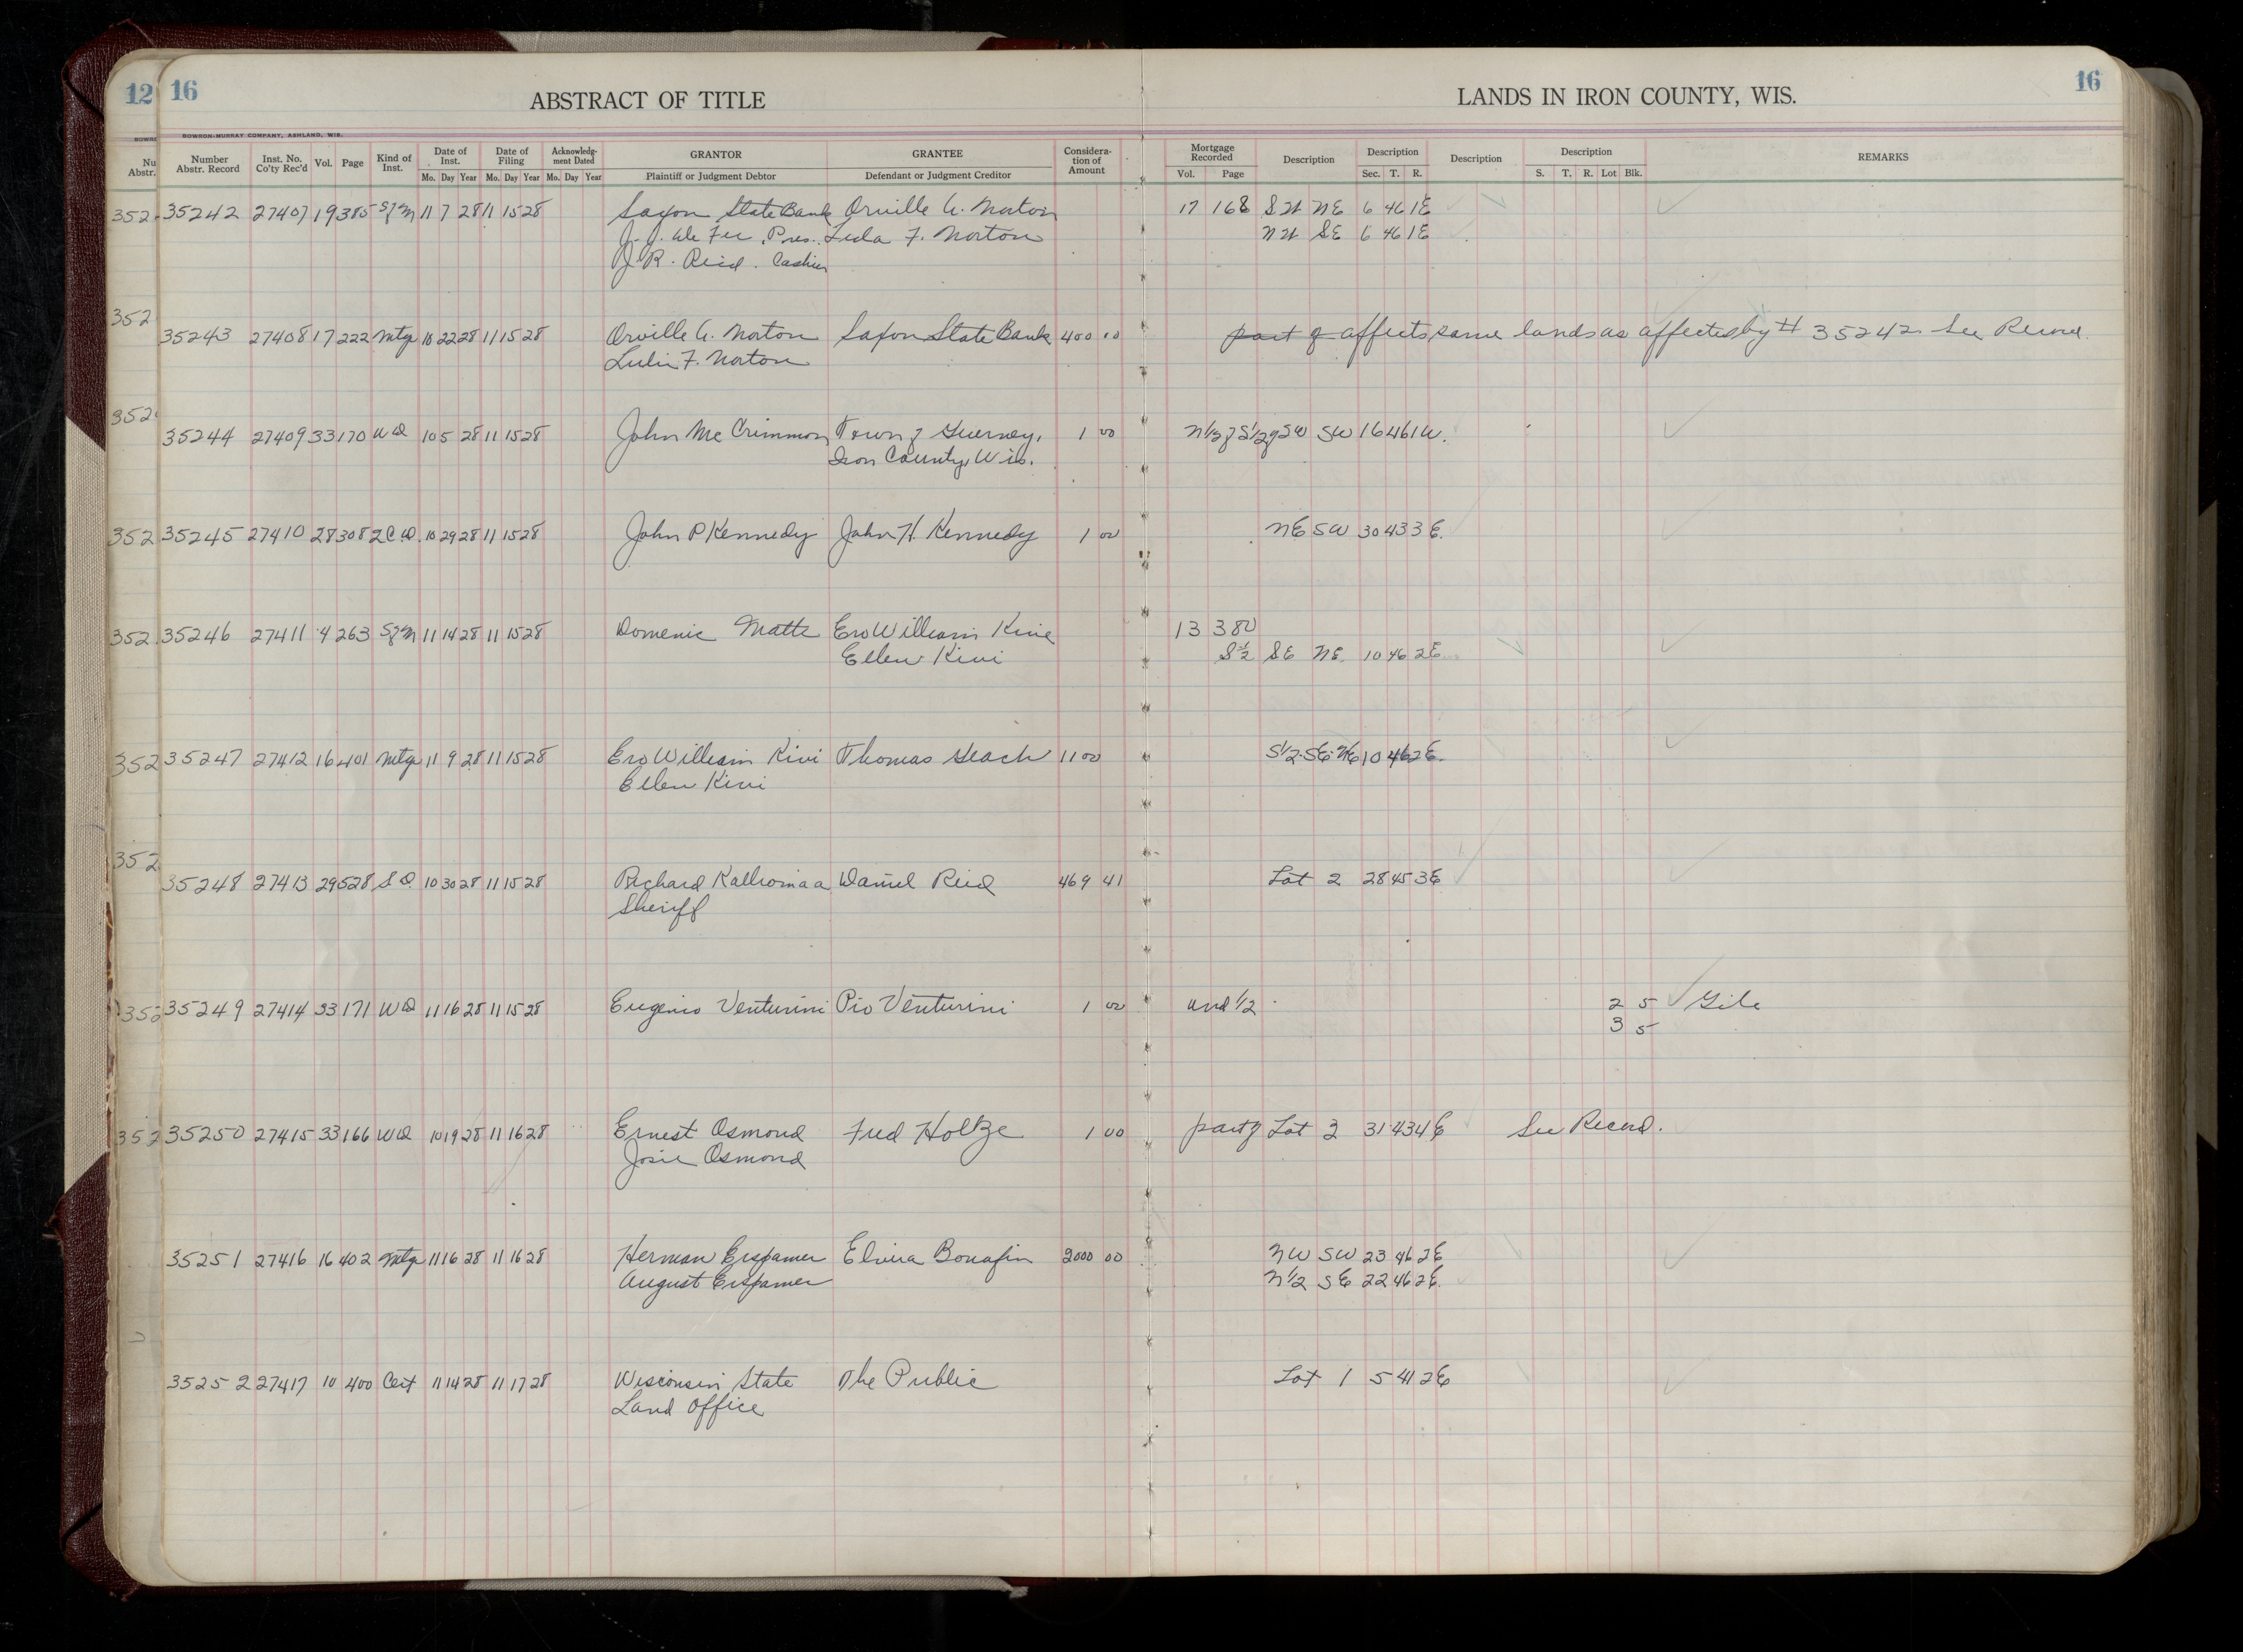 12 16
ABSTRACT OF TITLE
LANDS IN IRON COUNTY, WIS.
16
BOWRON-MURRAY COMPANY, ASHLAND, WIS.
Number Abstr. Record Inst. No. Co'ty Rec'd Vol. Page Kind of Inst. Date of Inst. Mo. Day Year Date of Filing Mo. Day Year Acknowledg-ment Dated Mo. Day Year GRANTOR Plaintiff or Judgment Debtor GRANTEE Defendant or Judgment Creditor Considera-tion of Amount Mortgage Recorded Vol. Page Description Description Sec. T. R. Description Description S. T. R. Lot Blk. REMARKS
35242 27407 19 385 S of M 11 7 28 11 15 28 Saxon State Bank Orville A. Norton 17 168 NE 6 46 1E
Pres. Lula F. Norton SE 6 46 1E
J. R. Reid. Cashier
35243 27408 17 222 Mtg 10 22 28 11 15 28 Orville A. Norton Saxon State Bank 400 00 part of affects same lands as affected by # 35242 See Record.
F. Norton
35244 27409 33 170 WD 10 5 28 11 15 28 John McCrimmon Town of Guerney, 1 00 N1/2 of S1/2 of SW SW 16 46 1W.
Iron County, Wis.
35245 27410 28 308 2CD 10 29 28 11 15 28 John P Kennedy John H. Kennedy 1 00 NE SW 30 43 3E.
35246 27411 4 263 S of M 11 14 28 11 15 28 Domenic Matte Ero William Kivi 13 380
Ellen Kivi S1/2 SE NE 10 46 2E
35247 27412 16 401 Mtg 11 9 28 11 15 28 Ero William Kivi Thomas Geach 11 00 S1/2 SE NE 10 46 2E.
Ellen Kivi
35248 27413 29 528 S D. 10 30 28 11 15 28 Richard Kalliomaa Daniel Reid 469 41 Lot 2 28 45 3E
Sheriff
35249 27414 33 171 WD 11 16 28 11 15 28 Eugenio Venturini Pio Venturini 1 00 und 1/2 2 5 Gile
3 5
35250 27415 33 166 WD 10 19 28 11 16 28 Ernest Osmond Fred Holtze 1 00 part of Lot 3143 4E See Record.
Josie Osmond
35251 27416 16 402 Mtg 11 16 28 11 16 28 Herman Erspamer Elvira Bonafin 2000 00 NW SW 23 46 2E
August Erspamer N1/2 SE 22 46 2E.
35252 27417 10 400 Cert 11 14 28 11 17 28 Wisconsin State The Public Lot 1 5 41 2E
Land Office